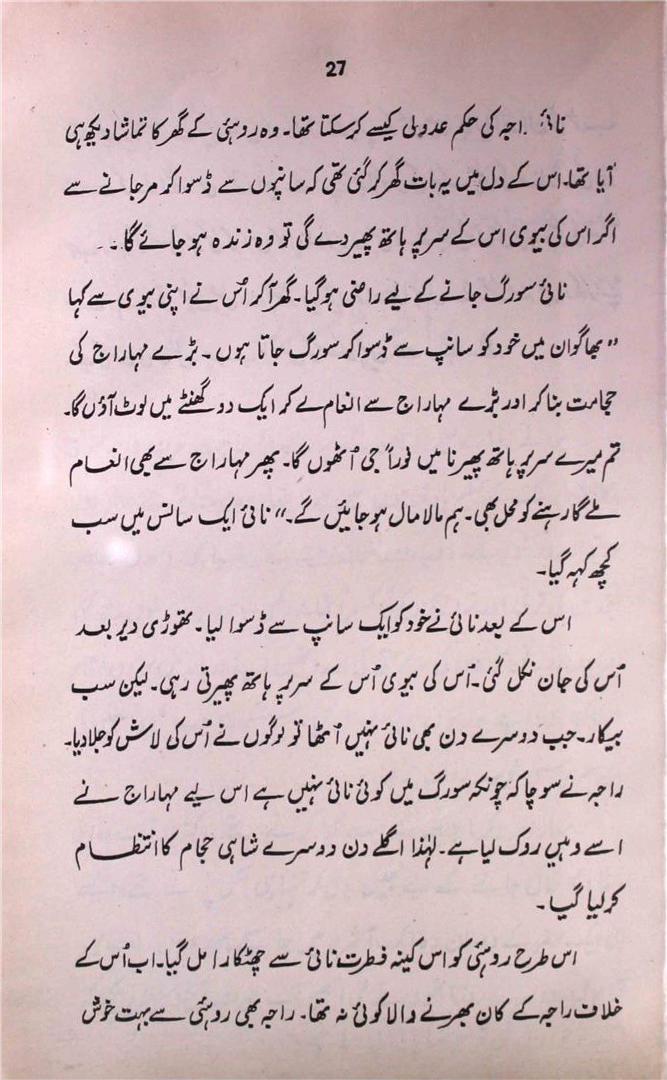 27
نائی راجہ کی حکم عدولی کیسے کرسکتا تھا۔ وہ روہنی کے گھر کا تماشا دیکھ ہی
آیا تھا۔ اس کے دل میں یہ بات گھر کر گئی تھی کہ سانپوں سے ڈسوا کر مر جانے سے
اگر اس کی بیوی اس کے سر پر ہاتھ پھیر دے گی تو وہ زندہ ہو جائے گا۔
نائی سورگ جانے کے لیے راضی ہوگیا۔ گھر آکر اُس نے اپنی بیوی سے کہا
"بھاگوان میں خود کو سانپ سے ڈسوا کر سورگ جاتا ہوں۔ بڑے مہاراج کی
حجامت بنا کر اور بڑے مہاراج سے انعام لے کر ایک دو گھنٹے میں لوٹ آؤں گا۔
تم میرے سر پر ہاتھ پھیرنا میں فوراً جی اٹھوں گا۔ پھر مہاراج سے بھی انعام
ملے گا رہنے کو محل بھی۔ ہم مالا مال ہو جائیں گے۔" نائی ایک سانس میں سب
کچھ کہہ گیا۔
اس کے بعد نائی نے خود کو ایک سانپ سے ڈسوا لیا۔ تھوڑی دیر بعد
اُس کی جان نکل گئی۔ اُس کی بیوی اُس کے سر پر ہاتھ پھیرتی رہی۔ لیکن سب
بیکار۔ جب دوسرے دن بھی نائی نہیں اُٹھا تو لوگوں نے اُس کی لاش کو جلا دیا۔
راجہ نے سوچا کہ چونکہ سورگ میں کوئی نائی نہیں ہے اس لیے مہاراج نے
اسے وہیں روک لیا ہے۔ لہٰذا اگلے دن دوسرے شاہی حجام کا انتظام
کر لیا گیا۔
اس طرح روہنی کو اس کینہ فطرت نائی سے چھٹکارا مل گیا۔ اب اُس کے
خلاف راجہ کے کان بھرنے والا کوئی نہ تھا۔ راجہ بھی روہنی سے بہت خوش